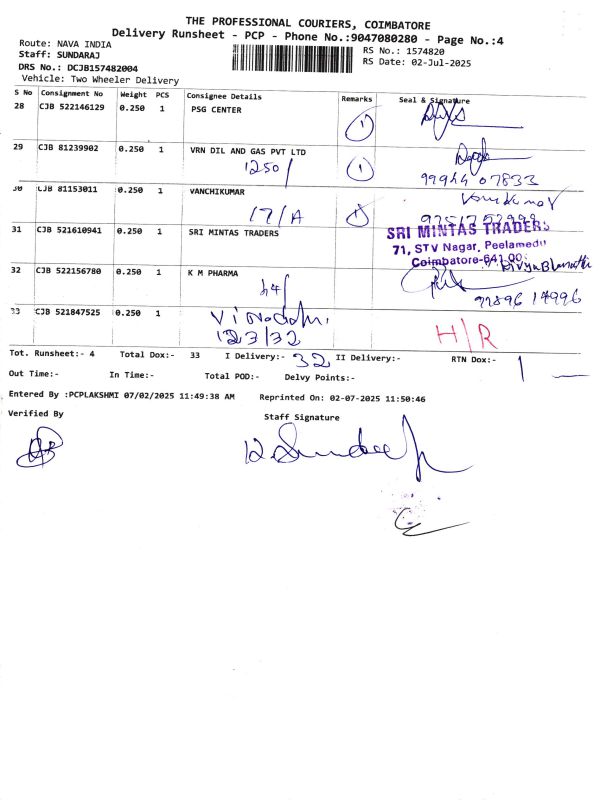 THE PROFESSIONAL COURIERS, COIMBATORE
Delivery Runsheet - PCP - Phone No.:9047080280 - Page No.:4
Route: NAVA INDIA
Staff: SUNDARAJ
DRS No.: DCJB157482004
Vehicle: Two Wheeler Delivery
RS No.: 1574820
RS Date: 02-Jul-2025
S No Consignment No Weight PCS Consignee Details Remarks Seal & Signature
28 CJB 522146129 0.250 1 PSG CENTER 1
29 CJB 81239902 0.250 1 VRN DIL AND GAS PVT LTD
1250/ 1 99944 07833
30 CJB 81153011 0.250 1 VANCHIKUMAR
17/A 1
31 CJB 521610941 0.250 1 SRI MINTAS TRADERS
SRI MINTAS TRADERS
71, STV Nagar, Peelamedu
Coimbatore-641 00
32 CJB 522156780 0.250 1 K M PHARMA
h4/ 99896 14996
33 CJB 521847525 0.250 1
123/32 H/R
Tot. Runsheet:- 4 Total Dox:- 33 I Delivery:- 32 II Delivery:- RTN Dox:- 1
Out Time:- In Time:- Total POD:- Delvy Points:-
Entered By :PCPLAKSHMI 07/02/2025 11:49:38 AM Reprinted On: 02-07-2025 11:50:46
Verified By Staff Signature